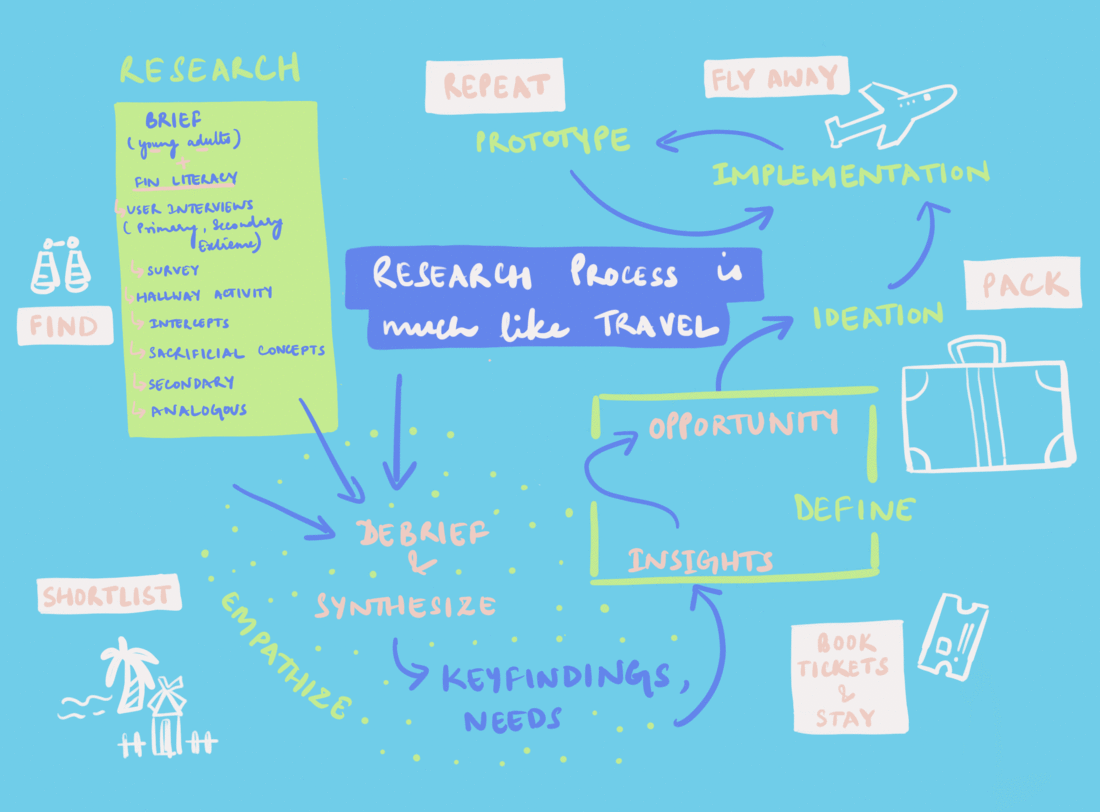 RESEARCH
BRIEF
(young adults)
+
FIN LITERACY
USER INTERVIEWS
(Primary, Secondary
Extreme)
SURVEY
HALLWAY ACTIVITY
INTERCEPTS
SACRIFICIAL CONCEPTS
SECONDARY
ANALOGOUS
FIND
REPEAT
PROTOTYPE
FLY AWAY
IMPLEMENTATION
RESEARCH PROCESS is
much like TRAVEL
IDEATION
PACK
OPPORTUNITY
DEFINE
INSIGHTS
DEBRIEF
&
SYNTHESIZE
EMPATHIZE
KEYFINDINGS,
NEEDS
SHORTLIST
BOOK
TICKETS
&
STAY